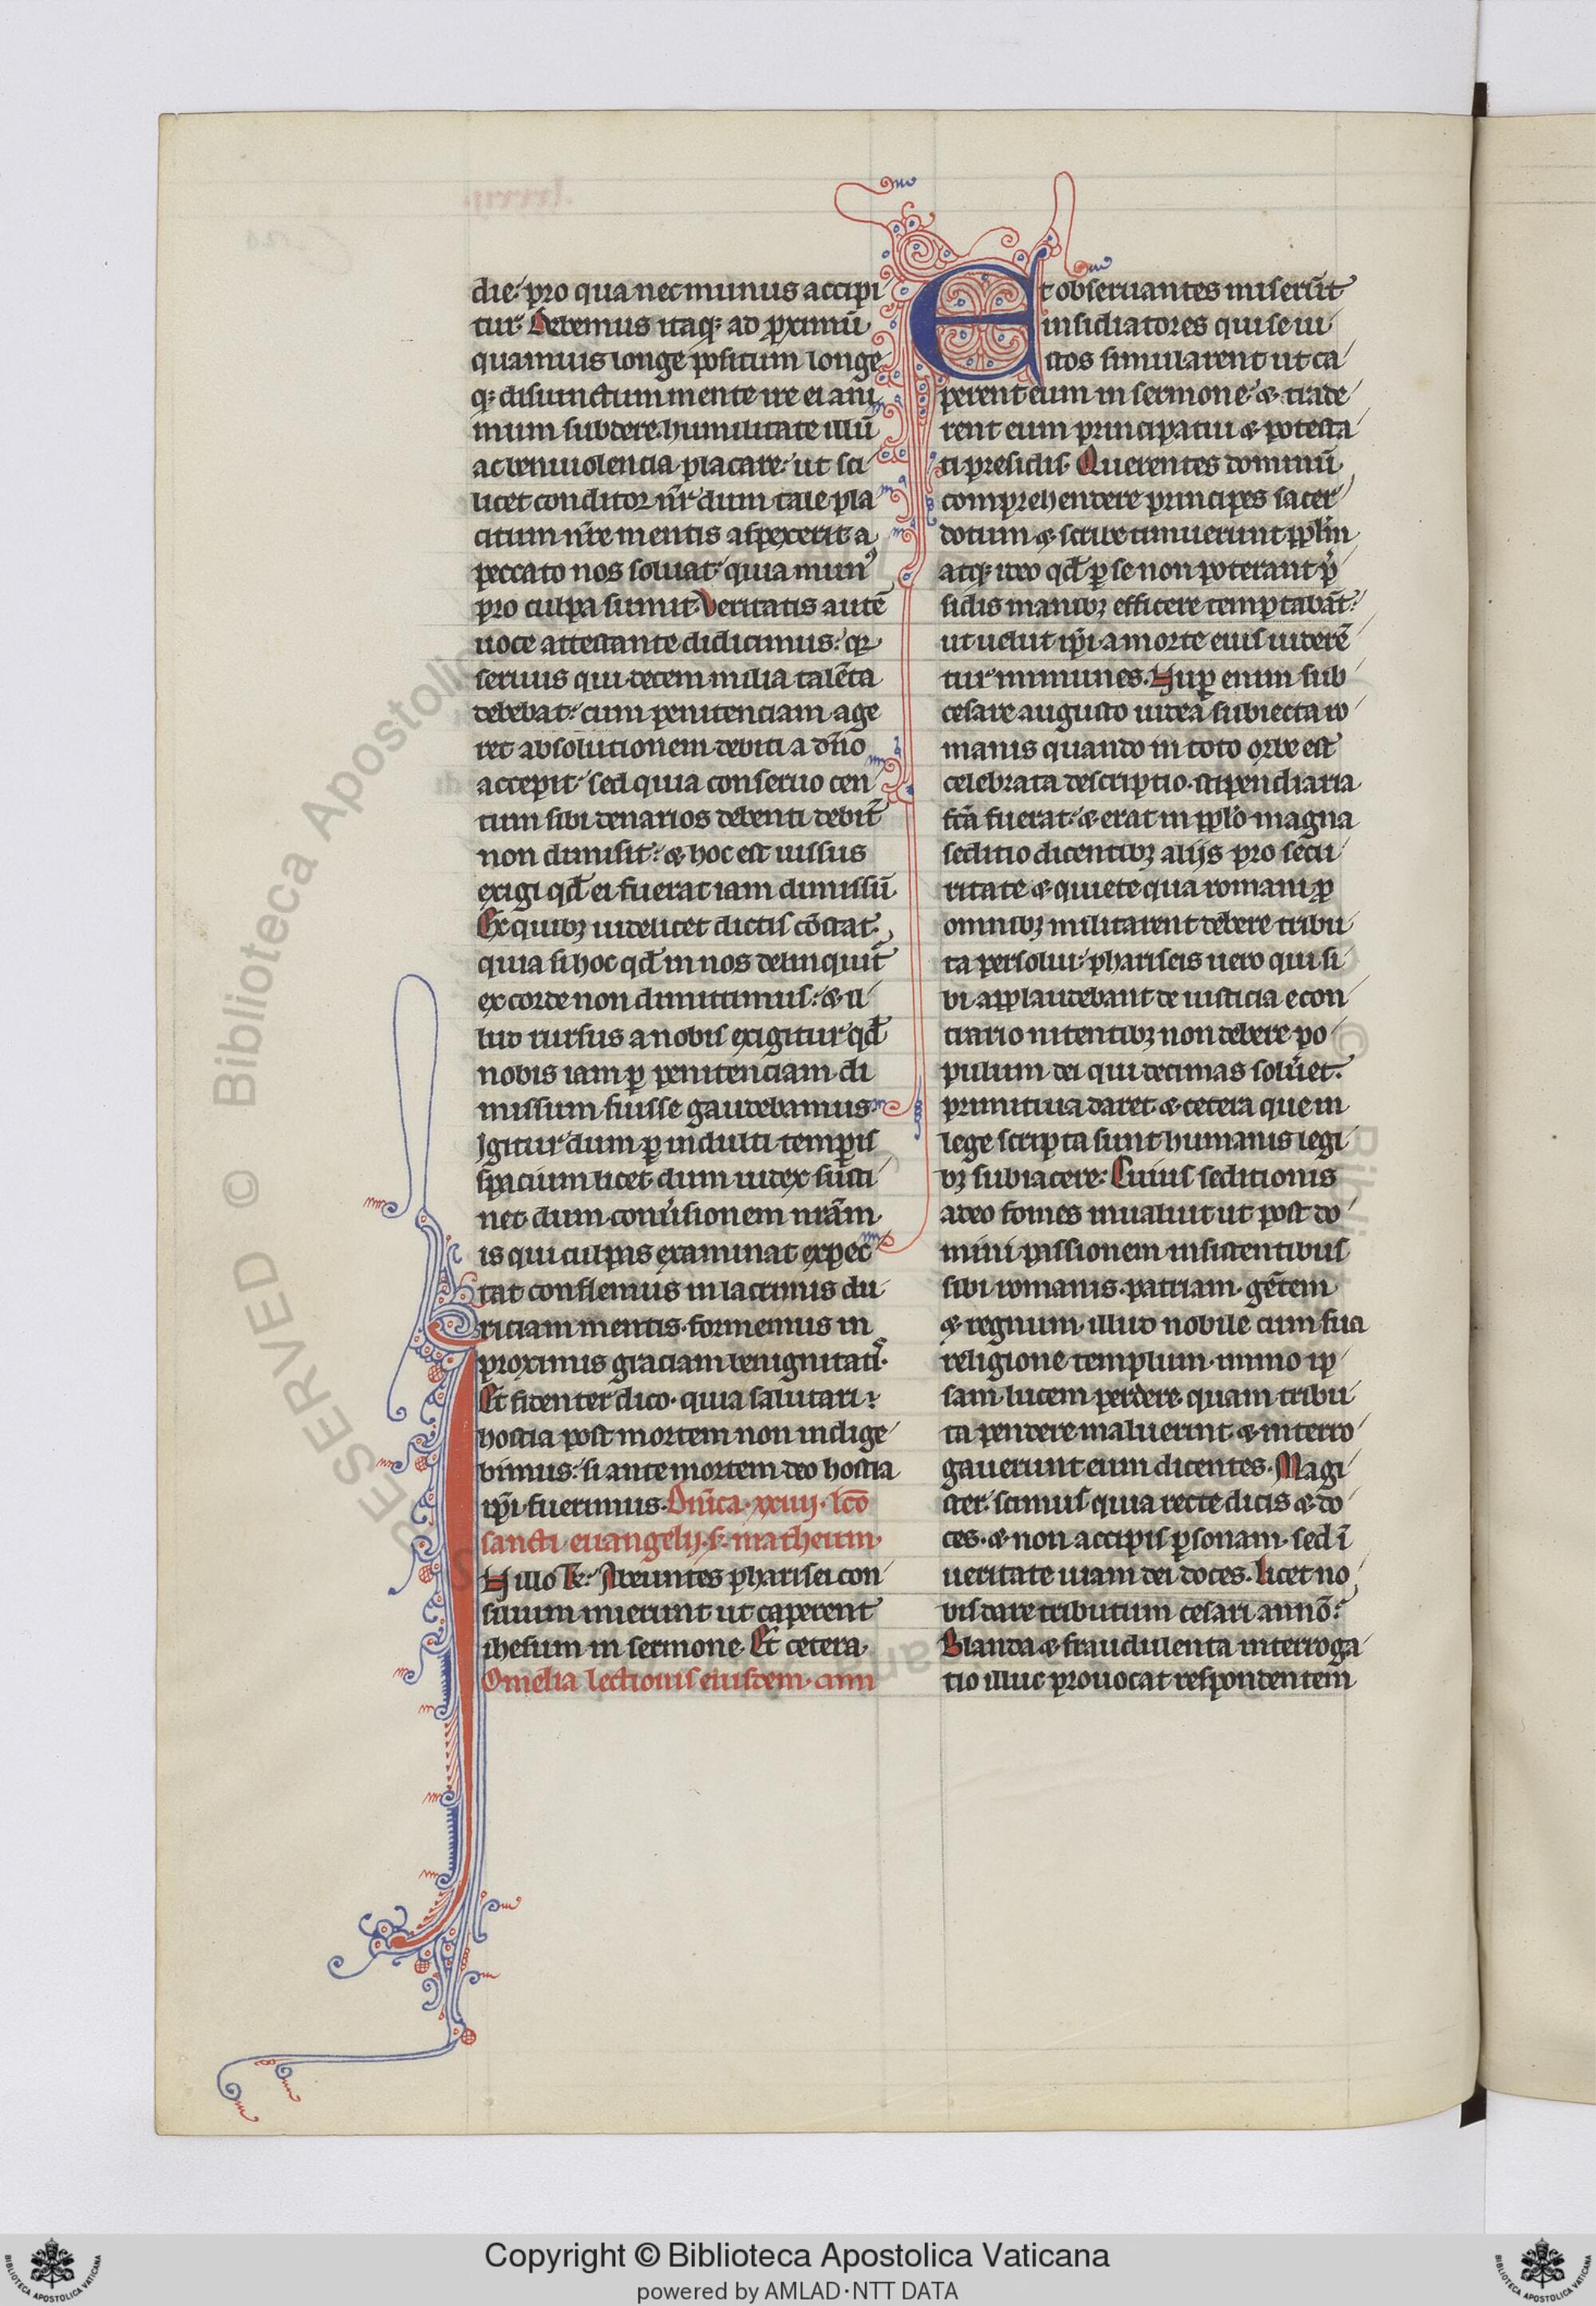 die. pro qua nec munus accipi
tur. Debemus itaq; ad ꝓximū
quamuis longe positum longe
q; disiunctum mente ire ei ani
mum subdere. humilitate illū
ac beniuolencia placare. ut sci
licet conditor nr̄ dum tale pla
citum nr̄e mentis aspexerit a
peccato nos soluat. quia munꝰ
pro culpa sumit. Veritatis autē
uoce attestante didicimus. qꝛ
seruus qui decem milia talēta
debebat. cum penitenciam age
ret absolutionem debiti a dn̄o
accepit. sed quia conseruo cen
tum sibi denarios debenti debit̄
non dimisit. ⁊ hoc est iussus
exigi qd̄ ei fuerat iam dimissū
Ex quibꝫ uidelicet dictis cōstat.
quia si hoc qd̄ in nos delinquit̄
ex corde non dimittimus. ⁊ il
lud rursus a nobis exigitur qd̄
nobis iam ꝑ penitenciam di
missum fuisse gaudebamus.
Igitur dum ꝑ indulti temꝑis
spacium licet. dum iudex susti
net dum conu̾sionem nrām
is qui culpas examinat expec
tat conflemus in lacrimis du
riciam mentis. formemus in
proximis graciam benignitatis.
Et fidenter dico. quia salutari
hostia post mortem non indige
bimus. si ante mortem deo hostia
ip̄i fuerimus. Dn̄ica. xxiiij. lc̄o
sancti euangelij. s. matheum.
In illo t̄. Abeuntes pharisei con
silium inierunt ut caperent
ihesum in sermone. Et cetera.
Omelia lectionis eiusdem. cum
Et obseruantes miserūt
insidiatores qui se iu
stos simularent ut ca
perent eum in sermone. ⁊ trade
rent eum principatui ⁊ potesta
ti presidis. Querentes dominū
comprehendere principes sacer
dotum ⁊ scribe timuerunt ppl̄m
atq; ideo qd̄ ꝑ se non poterant p̄
sidis manibꝫ efficere temptabāt.
ut uelut ip̄i a morte eius uiderē
tur inmunes. Nuꝑ enim sub
cesare augusto iudea subiecta ro
manis quando in toto orbe est
celebrata descriptio. stipendiaria
fc̄a fuerat. ⁊ erat in ppl̄o magna
seditio dicentibꝫ alijs pro secu
ritate ⁊ quiete qua romani ꝓ
omnibꝫ militarent debere tribu
ta persolui. phariseis uero qui si
bi applaudebant de iusticia econ
trario nitentibꝫ non debere po
pulum dei qui decimas solu̾et.
primitiua daret. ⁊ cetera que in
lege scripta sunt humanis legi
bꝫ subiacere. Cuius seditionis
adeo fomes inualuit ut post do
mini passionem insistentibus
sibi romanis. patriam. gētem
⁊ regnum. illud nobile cum sua
religione templum. immo ip
sam. lucem perdere. quam tribu
ta pendere maluerint. ⁊ interro
gauerunt eum dicentes. Magi
ster. scimus quia recte dicis ⁊ do
ces. ⁊ non accipis ꝑsonam. sed ī
ueritate uiam dei doces. Licet no
bis dare tributum cesari. an nō.
Blanda ⁊ fraudulenta interroga
tio illuc prouocat respondentem
Copyright © Biblioteca Apostolica Vaticana
powered by AMLAD·NTT DATA